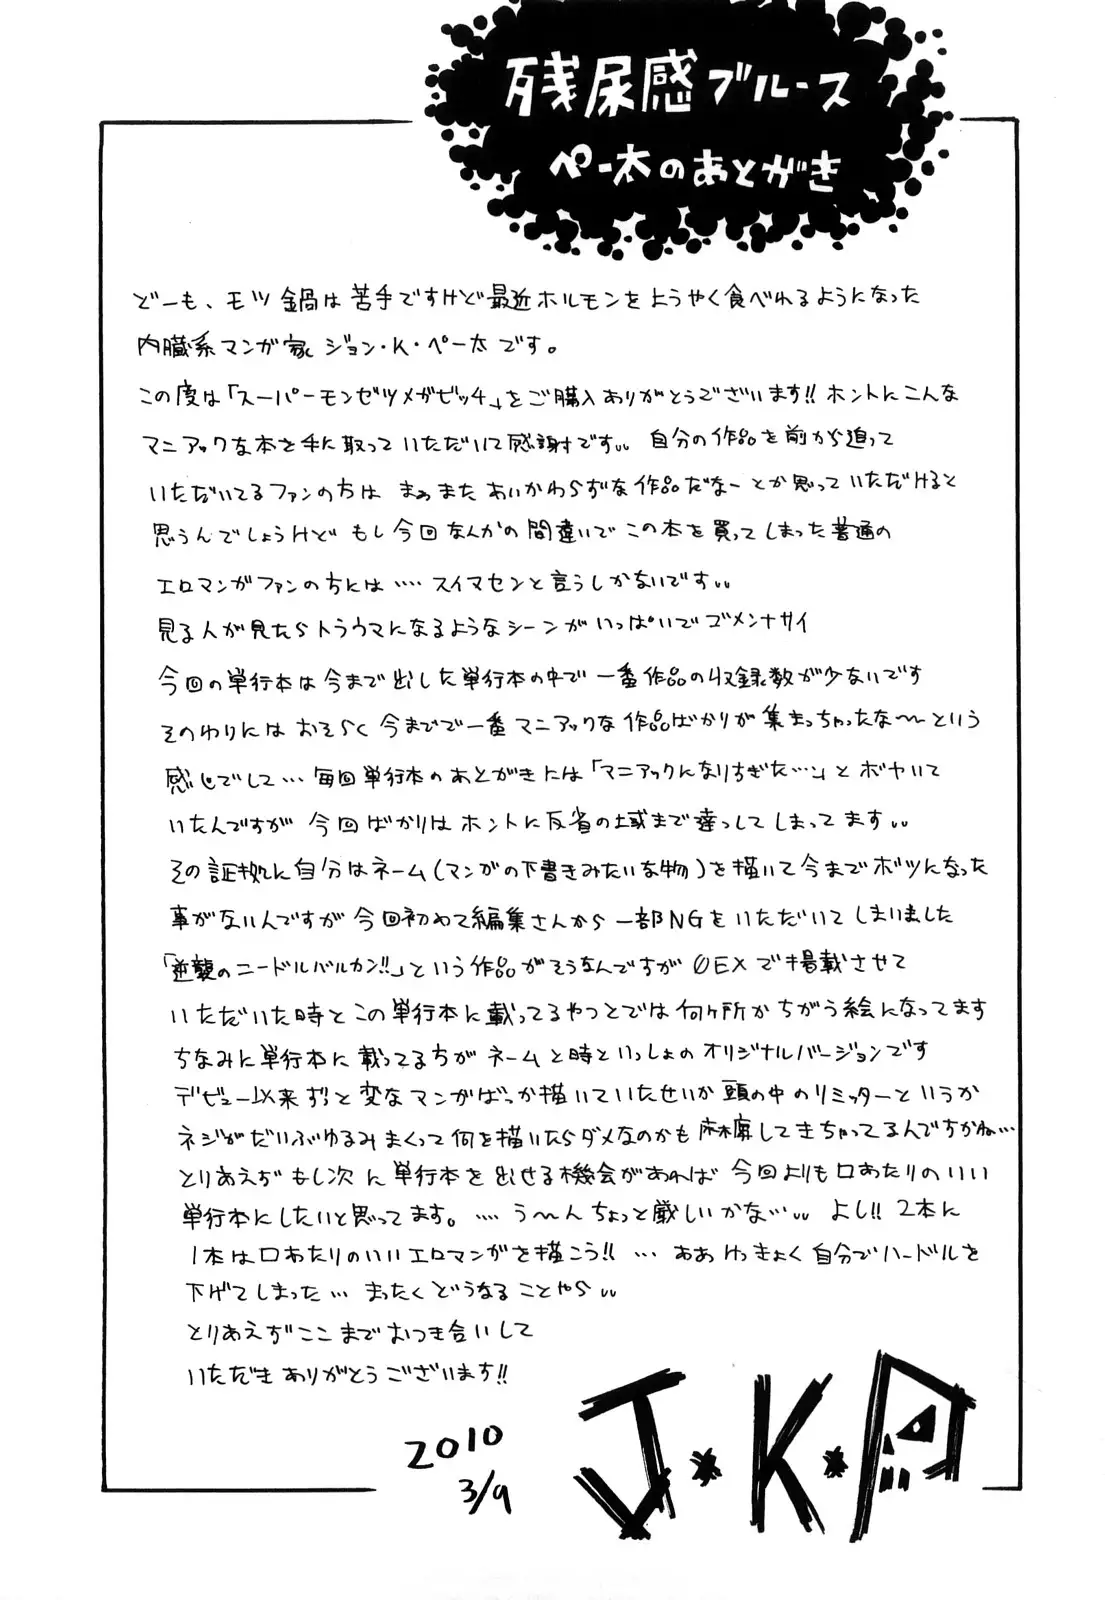 残尿感ブルース
ペー太のあとがき
どーも、モツ鍋は苦手ですけど最近ホルモンをようやく食べれるようになった
内臓系マンガ家 ジョン・K・ペー太です。
この度は「スーパーモンゼツメガビッチ」をご購入ありがとうございます!!ホントにこんな
マニアックな本を手に取っていただいて感謝です。。自分の作品を前から追って
いただいてるファンの方は まぁまたあいかわらずな作品だなーとか思っていただけると
思うんでしょうけど もし今回なんかの間違いでこの本を買ってしまった普通の
エロマンガファンの方には‥‥スイマセンと言うしかないです。。
見る人が見たらトラウマになるようなシーンがいっぱいでゴメンナサイ
今回の単行本は今まで出した単行本の中で一番作品の収録数が少ないです
そのわりにはおそらく今までで一番マニアックな作品ばかりが集まっちゃったな〜という
感じでして…毎回単行本のあとがきには「マニアックになりすぎた…」とボヤいて
いたんですが 今回ばかりはホントに反省の域まで達っしてしまってます。。
その証拠に自分はネーム(マンガの下書きみたいな物)を描いて今までボツになった
事がないんですが今回初めて編集さんから一部NGをいただいてしまいました
「逆襲のニードルバルカン!!」という作品がそうなんですが0EXで掲載させて
いただいた時とこの単行本に載ってるやつとでは何ヶ所かちがう絵になってます
ちなみに単行本に載ってる方がネームと時といっしょのオリジナルバージョンです
デビュー以来ずっと変なマンガばっか描いていたせいか頭の中のリミッターというか
ネジがだいぶゆるみまくって何を描いたらダメなのかも麻痺してきちゃってるんですかね…
とりあえずもし次に単行本を出せる機会があれば 今回よりも口あたりのいい
単行本にしたいと思ってます。‥‥う〜んちょっと厳しいかな…。。よし!!2本に
1本は口あたりのいいエロマンガを描こう!!…ああけっきょく自分でハードルを
下げてしまった…まったくどうなることやら。。
とりあえずここまでおつき合いして
いただきありがとうございます!!
2010
3/9
J*K*P